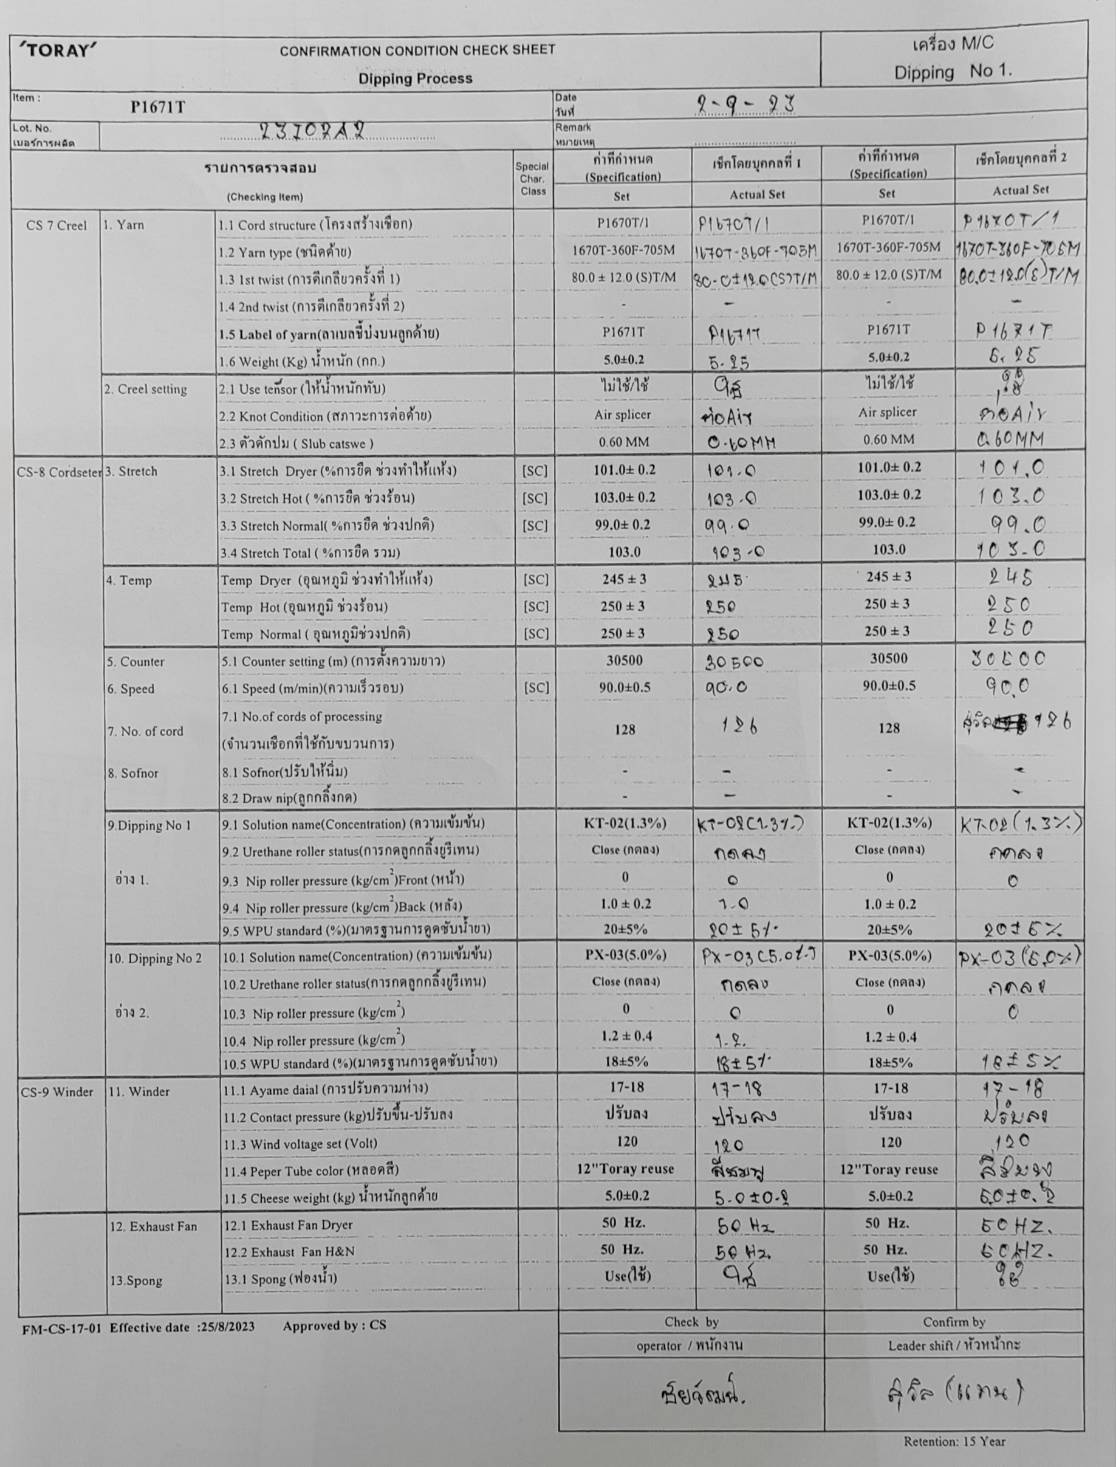 'TORAY'
CONFIRMATION CONDITION CHECK SHEET
Dipping Process
เครื่อง M/C
Dipping No 1.
Item : P1671T
Date วันที่ 2-9-23
Lot. No. เบอร์การผลิต 23I02A2
Remark หมายเหตุ
รายการตรวจสอบ (Checking Item) Special Char. Class ค่าที่กำหนด (Specification) Set เช็กโดยบุคคลที่ 1 Actual Set ค่าที่กำหนด (Specification) Set เช็กโดยบุคคลที่ 2 Actual Set
CS 7 Creel 1. Yarn 1.1 Cord structure (โครงสร้างเชือก) P1670T/1 P1670T/1 P1670T/1 P1670T/1
1.2 Yarn type (ชนิดด้าย) 1670T-360F-705M 1670T-360F-705M 1670T-360F-705M 1670T-360F-705M
1.3 1st twist (การตีเกลียวครั้งที่ 1) 80.0 ± 12.0 (S)T/M 80.0±12.0(S)T/M 80.0 ± 12.0 (S)T/M 80.0±12.0(S)T/M
1.4 2nd twist (การตีเกลียวครั้งที่ 2) - - - -
1.5 Label of yarn(ลาเบลชี้บ่งบนลูกด้าย) P1671T P1671T P1671T P1671T
1.6 Weight (Kg) น้ำหนัก (กก.) 5.0±0.2 5.25 5.0±0.2 5.25
2. Creel setting 2.1 Use tensor (ให้น้ำหนักทับ) ไม่ใช้/ใช้ ใช้ ไม่ใช้/ใช้ ใช้
2.2 Knot Condition (สภาวะการต่อด้าย) Air splicer ต่อAir Air splicer ต่อAir
2.3 ตัวดักปม ( Slub catswe ) 0.60 MM 0.60MM 0.60 MM 0.60MM
CS-8 Cordseter 3. Stretch 3.1 Stretch Dryer (%การยืด ช่วงทำให้แห้ง) [SC] 101.0± 0.2 101.0 101.0± 0.2 101.0
3.2 Stretch Hot ( %การยืด ช่วงร้อน) [SC] 103.0± 0.2 103.0 103.0± 0.2 103.0
3.3 Stretch Normal( %การยืด ช่วงปกติ) [SC] 99.0± 0.2 99.0 99.0± 0.2 99.0
3.4 Stretch Total ( %การยืด รวม) 103.0 103.0 103.0 103.0
4. Temp Temp Dryer (อุณหภูมิ ช่วงทำให้แห้ง) [SC] 245 ± 3 245 245 ± 3 245
Temp Hot (อุณหภูมิ ช่วงร้อน) [SC] 250 ± 3 250 250 ± 3 250
Temp Normal ( อุณหภูมิช่วงปกติ) [SC] 250 ± 3 250 250 ± 3 250
5. Counter 5.1 Counter setting (m) (การตั้งความยาว) 30500 30500 30500 30500
6. Speed 6.1 Speed (m/min)(ความเร็วรอบ) [SC] 90.0±0.5 90.0 90.0±0.5 90.0
7. No. of cord 7.1 No.of cords of processing (จำนวนเชือกที่ใช้กับขบวนการ) 128 126 128 สุวิล 126
8. Sofnor 8.1 Sofnor(ปรับให้นิ่ม) - - - -
8.2 Draw nip(ลูกกลิ้งกด) - - - -
9.Dipping No 1 9.1 Solution name(Concentration) (ความเข้มข้น) KT-02(1.3%) KT-02(1.3%) KT-02(1.3%) KT-02(1.3%)
9.2 Urethane roller status(การกดลูกกลิ้งยูรีเทน) Close (กดลง) กดลง Close (กดลง) กดลง
อ่าง 1. 9.3 Nip roller pressure (kg/cm²)Front (หน้า) 0 0 0 0
9.4 Nip roller pressure (kg/cm²)Back (หลัง) 1.0 ± 0.2 1.0 1.0 ± 0.2
9.5 WPU standard (%)(มาตรฐานการดูดซับน้ำยา) 20±5% 20±5% 20±5% 20±5%
10. Dipping No 2 10.1 Solution name(Concentration) (ความเข้มข้น) PX-03(5.0%) PX-03(5.0%) PX-03(5.0%) PX-03(5.0%)
10.2 Urethane roller status(การกดลูกกลิ้งยูรีเทน) Close (กดลง) กดลง Close (กดลง) กดลง
อ่าง 2. 10.3 Nip roller pressure (kg/cm²) 0 0 0 0
10.4 Nip roller pressure (kg/cm²) 1.2 ± 0.4 1.2. 1.2 ± 0.4
10.5 WPU standard (%)(มาตรฐานการดูดซับน้ำยา) 18±5% 18±5% 18±5% 18±5%
CS-9 Winder 11. Winder 11.1 Ayame daial (การปรับความห่าง) 17-18 17-18 17-18 17-18
11.2 Contact pressure (kg)ปรับขึ้น-ปรับลง ปรับลง ปรับลง ปรับลง ปรับลง
11.3 Wind voltage set (Volt) 120 120 120 120
11.4 Peper Tube color (หลอดสี) 12"Toray reuse สีชมพู 12"Toray reuse
11.5 Cheese weight (kg) น้ำหนักลูกด้าย 5.0±0.2 5.0±0.2 5.0±0.2 5.0±0.2
12. Exhaust Fan 12.1 Exhaust Fan Dryer 50 Hz. 50 Hz 50 Hz. 50HZ.
12.2 Exhaust Fan H&N 50 Hz. 50 Hz. 50 Hz. 50HZ.
13.Spong 13.1 Spong (ฟองน้ำ) Use(ใช้) ใช้ Use(ใช้) ใช้
FM-CS-17-01 Effective date :25/8/2023 Approved by : CS
Check by Confirm by
operator / พนักงาน Leader shift / หัวหน้ากะ
ชัยวัฒน์. สุวิล (แทน)
Retention: 15 Year